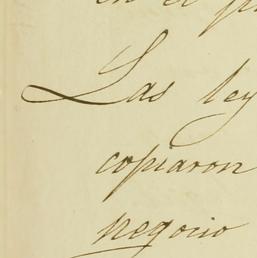 en el
Las ley
copiaron
negocio